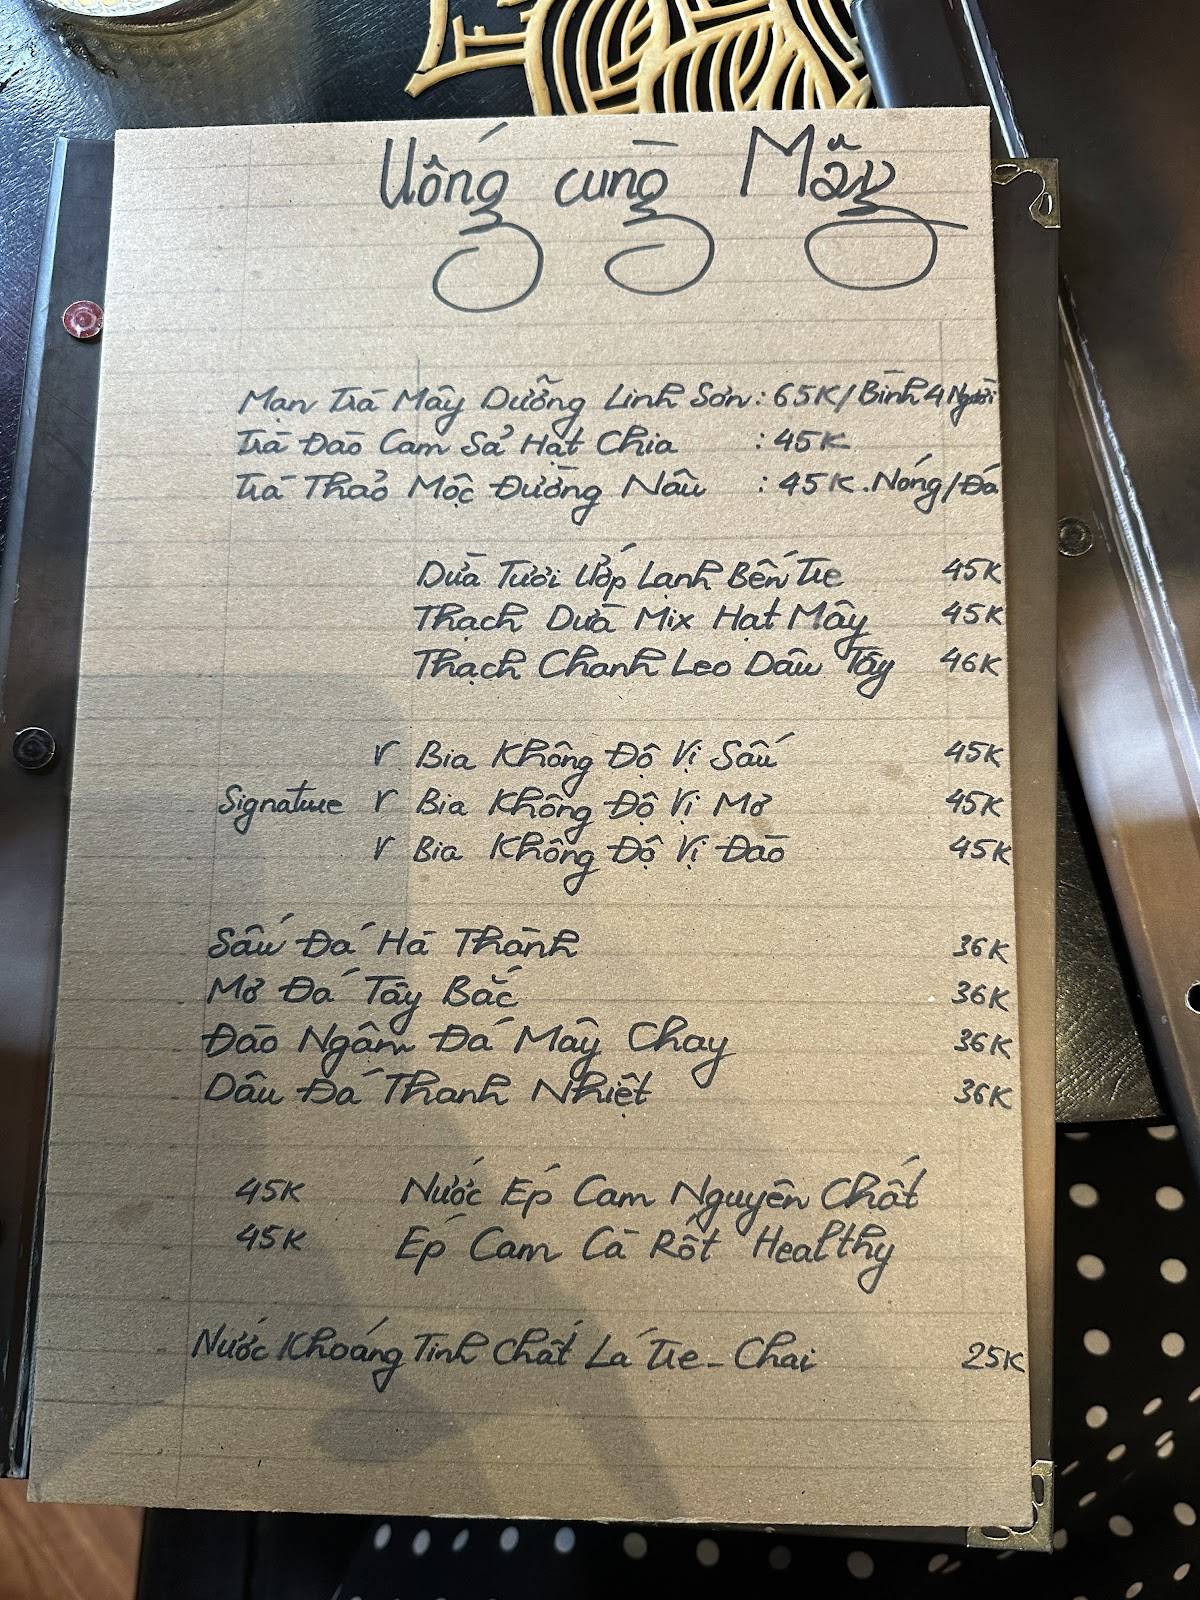 Uống cùng Mây
Mạn Trà Mây Dưỡng Linh Sơn : 65K/Bình 4 Người
Trà Đào Cam Sả Hạt Chia : 45K
Trà Thảo Mộc Đường Nâu : 45K. Nóng/Đá
Dừa Tươi Ướp Lạnh Bến Tre 45K
Thạch Dừa Mix Hạt Mây 45K
Thạch Chanh Leo Dâu Tây 46K
v Bia Không Độ Vị Sấu 45K
Signature v Bia Không Độ Vị Mơ 45K
v Bia Không Độ Vị Đào 45K
Sấu Đá Hà Thành 36K
Mơ Đá Tây Bắc 36K
Đào Ngâm Đá Mây Chay 36K
Dâu Đá Thanh Nhiệt 36K
45K Nước Ép Cam Nguyên Chất
45K Ép Cam Cà Rốt Healthy
Nước Khoáng Tinh Chất Lá Tre - Chai 25K